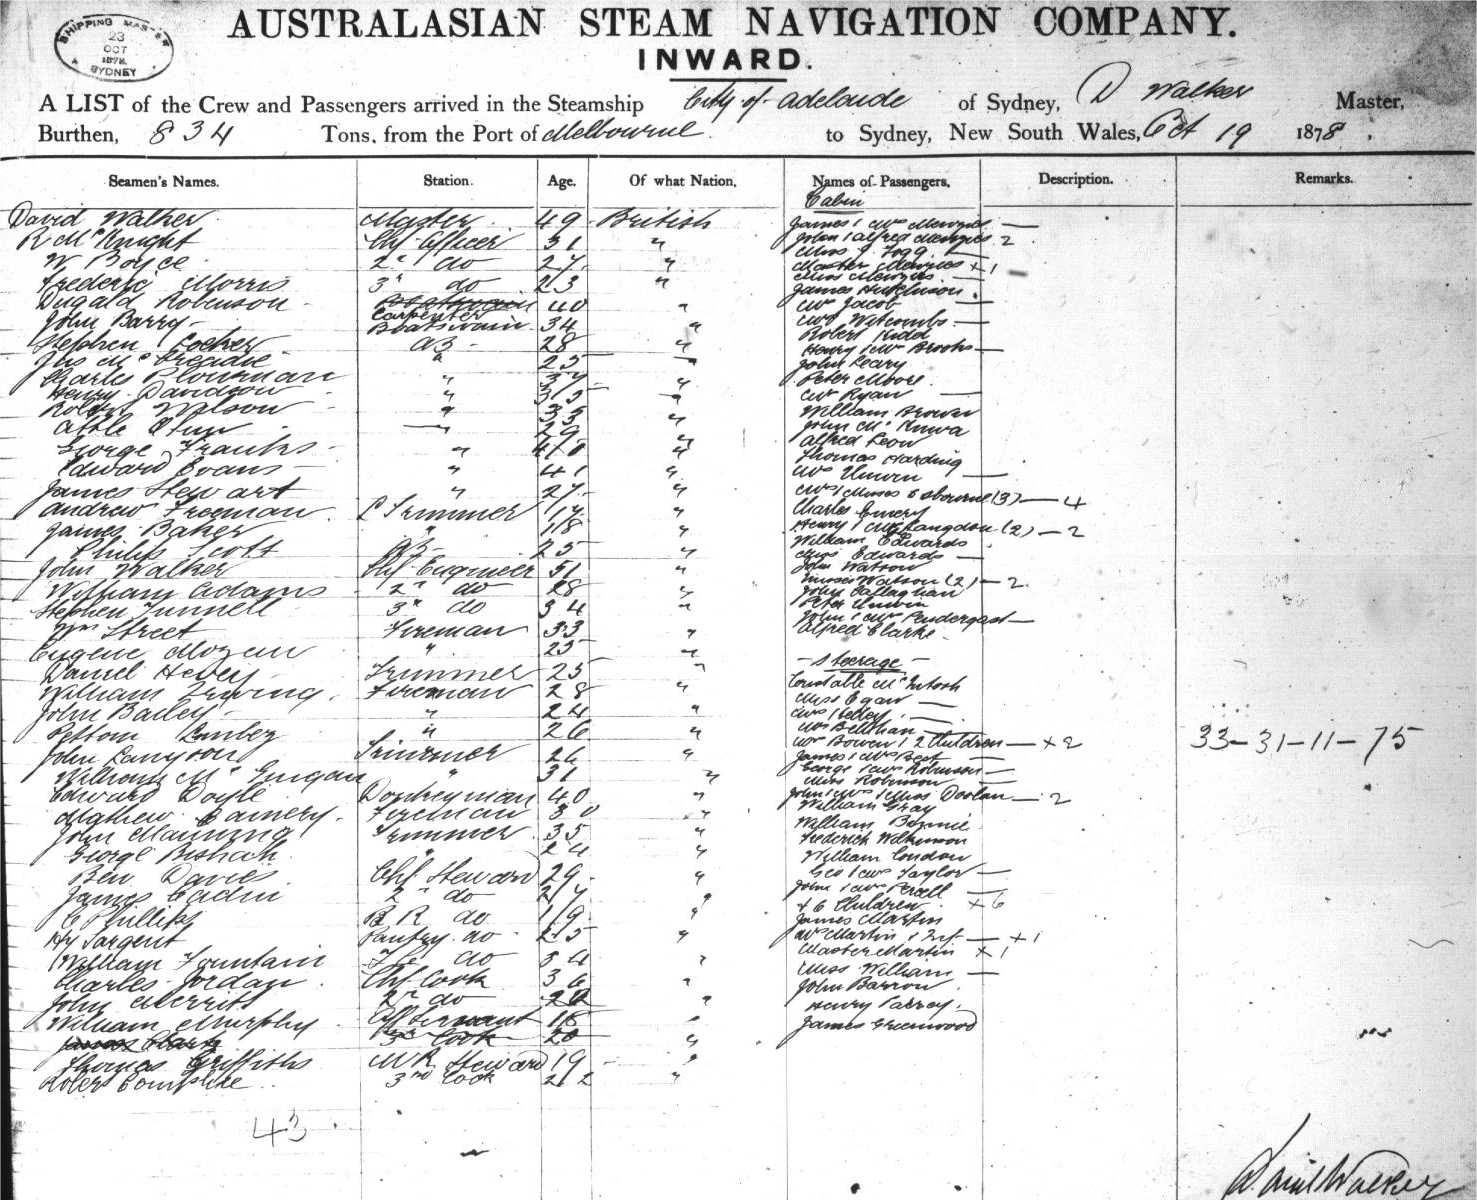 SHIPPING MASTER
23
OCT
1878
SYDNEY
AUSTRALASIAN STEAM NAVIGATION COMPANY.
INWARD.
A LIST of the Crew and Passengers arrived in the Steamship City of Adelaide of Sydney, D Walker Master,
Burthen, 834 Tons, from the Port of Melbourne to Sydney, New South Wales, Oct 19 1878.
Seamen's Names. Station. Age. Of what Nation. Names of Passengers. Description. Remarks.
David Walker Master 49 British
R McKnight Chf Officer 31 "
W Boyce 2nd do 27 "
Frederic Morris 3rd do 23 "
Dugald Robinson Carpenter 40 "
John Barry Boatswain 34 "
Stephen Cocker AB 28 "
Jas 25 "
Charles Plowman " 37 "
Henry Davidson " 35 "
Robert Wilson " 35 "
29 "
George Franks " 40 "
Edward Evans " 41 "
James Stewart " 27 "
Andrew Freeman L Trimmer 17 "
James Baker " 18 "
Philip Scott AB 25 "
John Walker Chf Engineer 51 "
William Adams 2nd do 28 "
Stephen Funnell 3rd do 34 "
Wm Street Fireman 33 "
Eugene " 25 "
Daniel Trimmer 25 "
William Irving Fireman 28 "
John Bailey " 24 "
" 26 "
John Trimmer 26 "
William " 31 "
Edward Doyle Donkeyman 40 "
Mathew Fireman 30 "
John Manning Trimmer 35 "
George " 24 "
Ben Davies Chf Steward 29 "
James 2nd do 27 "
C Phillips do 19 "
Hy Sargent Pantry do 25 "
William Fountain do 34 "
Charles Jordan Chf Cook 36 "
John Merritt 2nd do "
William Murphy Off Servant 18 "
3rd Cook 20 "
Thomas Griffiths MR Steward 19 "
3rd Cook 22 "
43
Cabin
James & Mrs Menzies —
John & Alfred Menzies 2
Miss J Fogg —
Master Menzies +1
Miss Menzies —
James Hutchinson
Mrs Jacob —
Mrs Witcombs —
Robert Kidd
Henry & Mrs Brooks —
John Leary
Peter Moore
Mrs Ryan —
William Brown
John
Alfred Leow
Thomas Harding
Mrs Unwin —
Mrs & Misses Osbourne (3) — 4
Charles Emery
Henry & Mrs Langdon (2) — 2
William Edwards
Mrs Edwards —
John Watson
Misses Watson (2) — 2
John Callaghan
Peter Unwin
John & Mrs Pendergast —
Alfred Clarke
— Steerage —
Constable McIntosh
Miss Egan —
Mrs Kelley —
Mrs —
Mrs Bowen & 2 Children — +2
James & Mrs Best —
George & Mrs Robinson —
Miss Robinson —
John & Mrs & Miss Doolan — 2
William Gray
William
Frederick Wilkinson
William London
Geo & Mrs Taylor —
John & Mrs —
+ 6 Children +6
James Martin
Mrs Martin & Inf — +1
Master Martin +1
Miss William —
John Barron
Henry
James Greenwood
33-31-11-75
David Walker